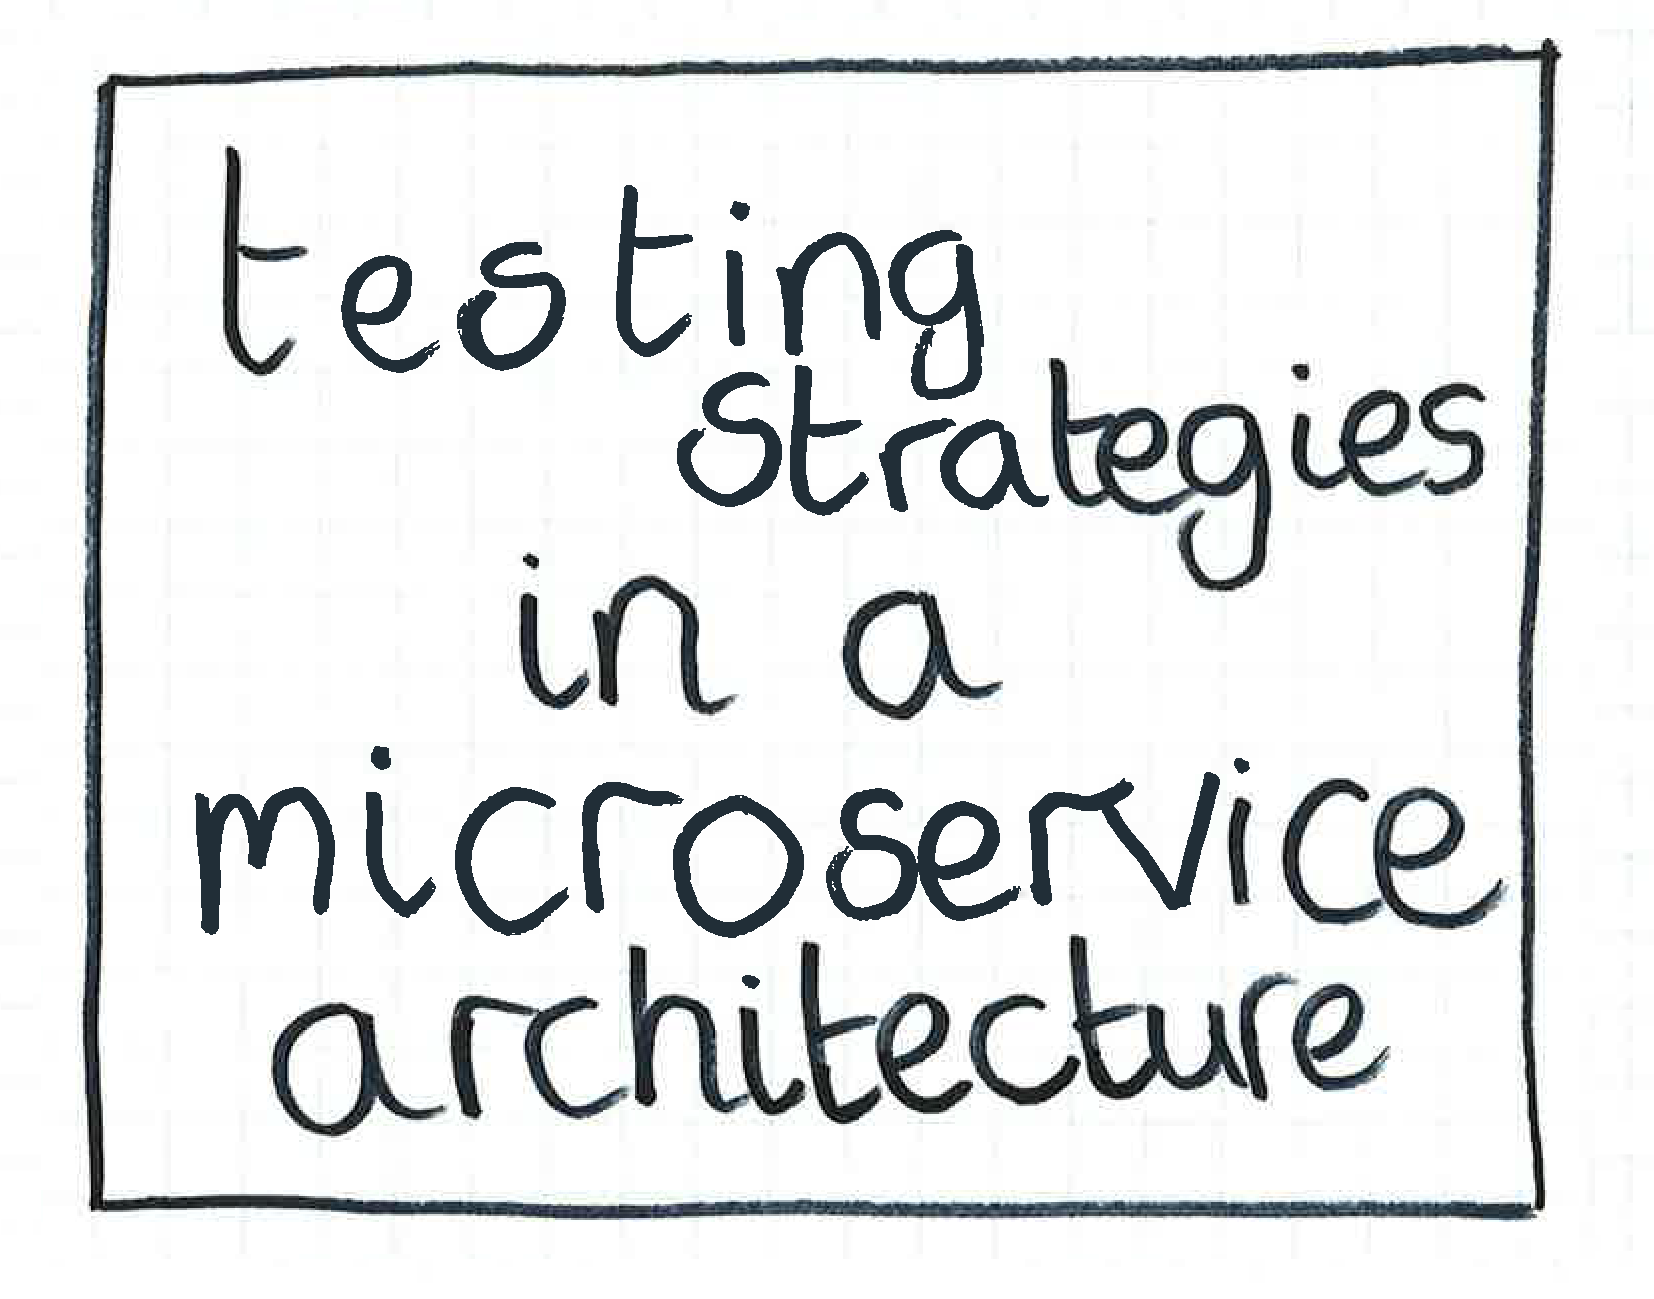 testing
strategies
in a
microservice
architecture